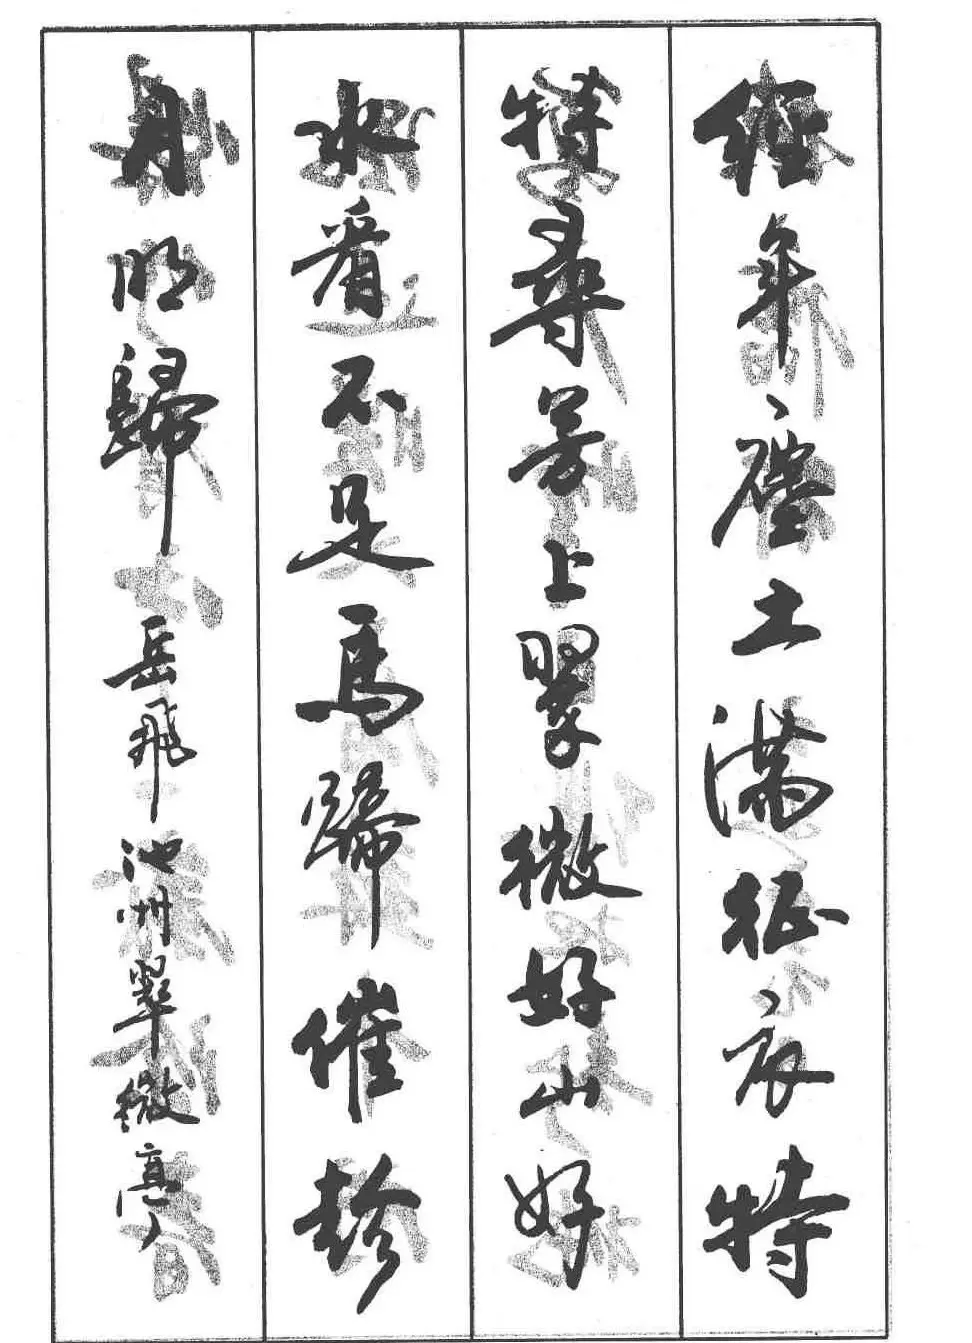 經年塵土滿征衣特
特尋芳上翠微好山好
水看不足馬蹄催趁
月明歸 岳飛池州翠微亭